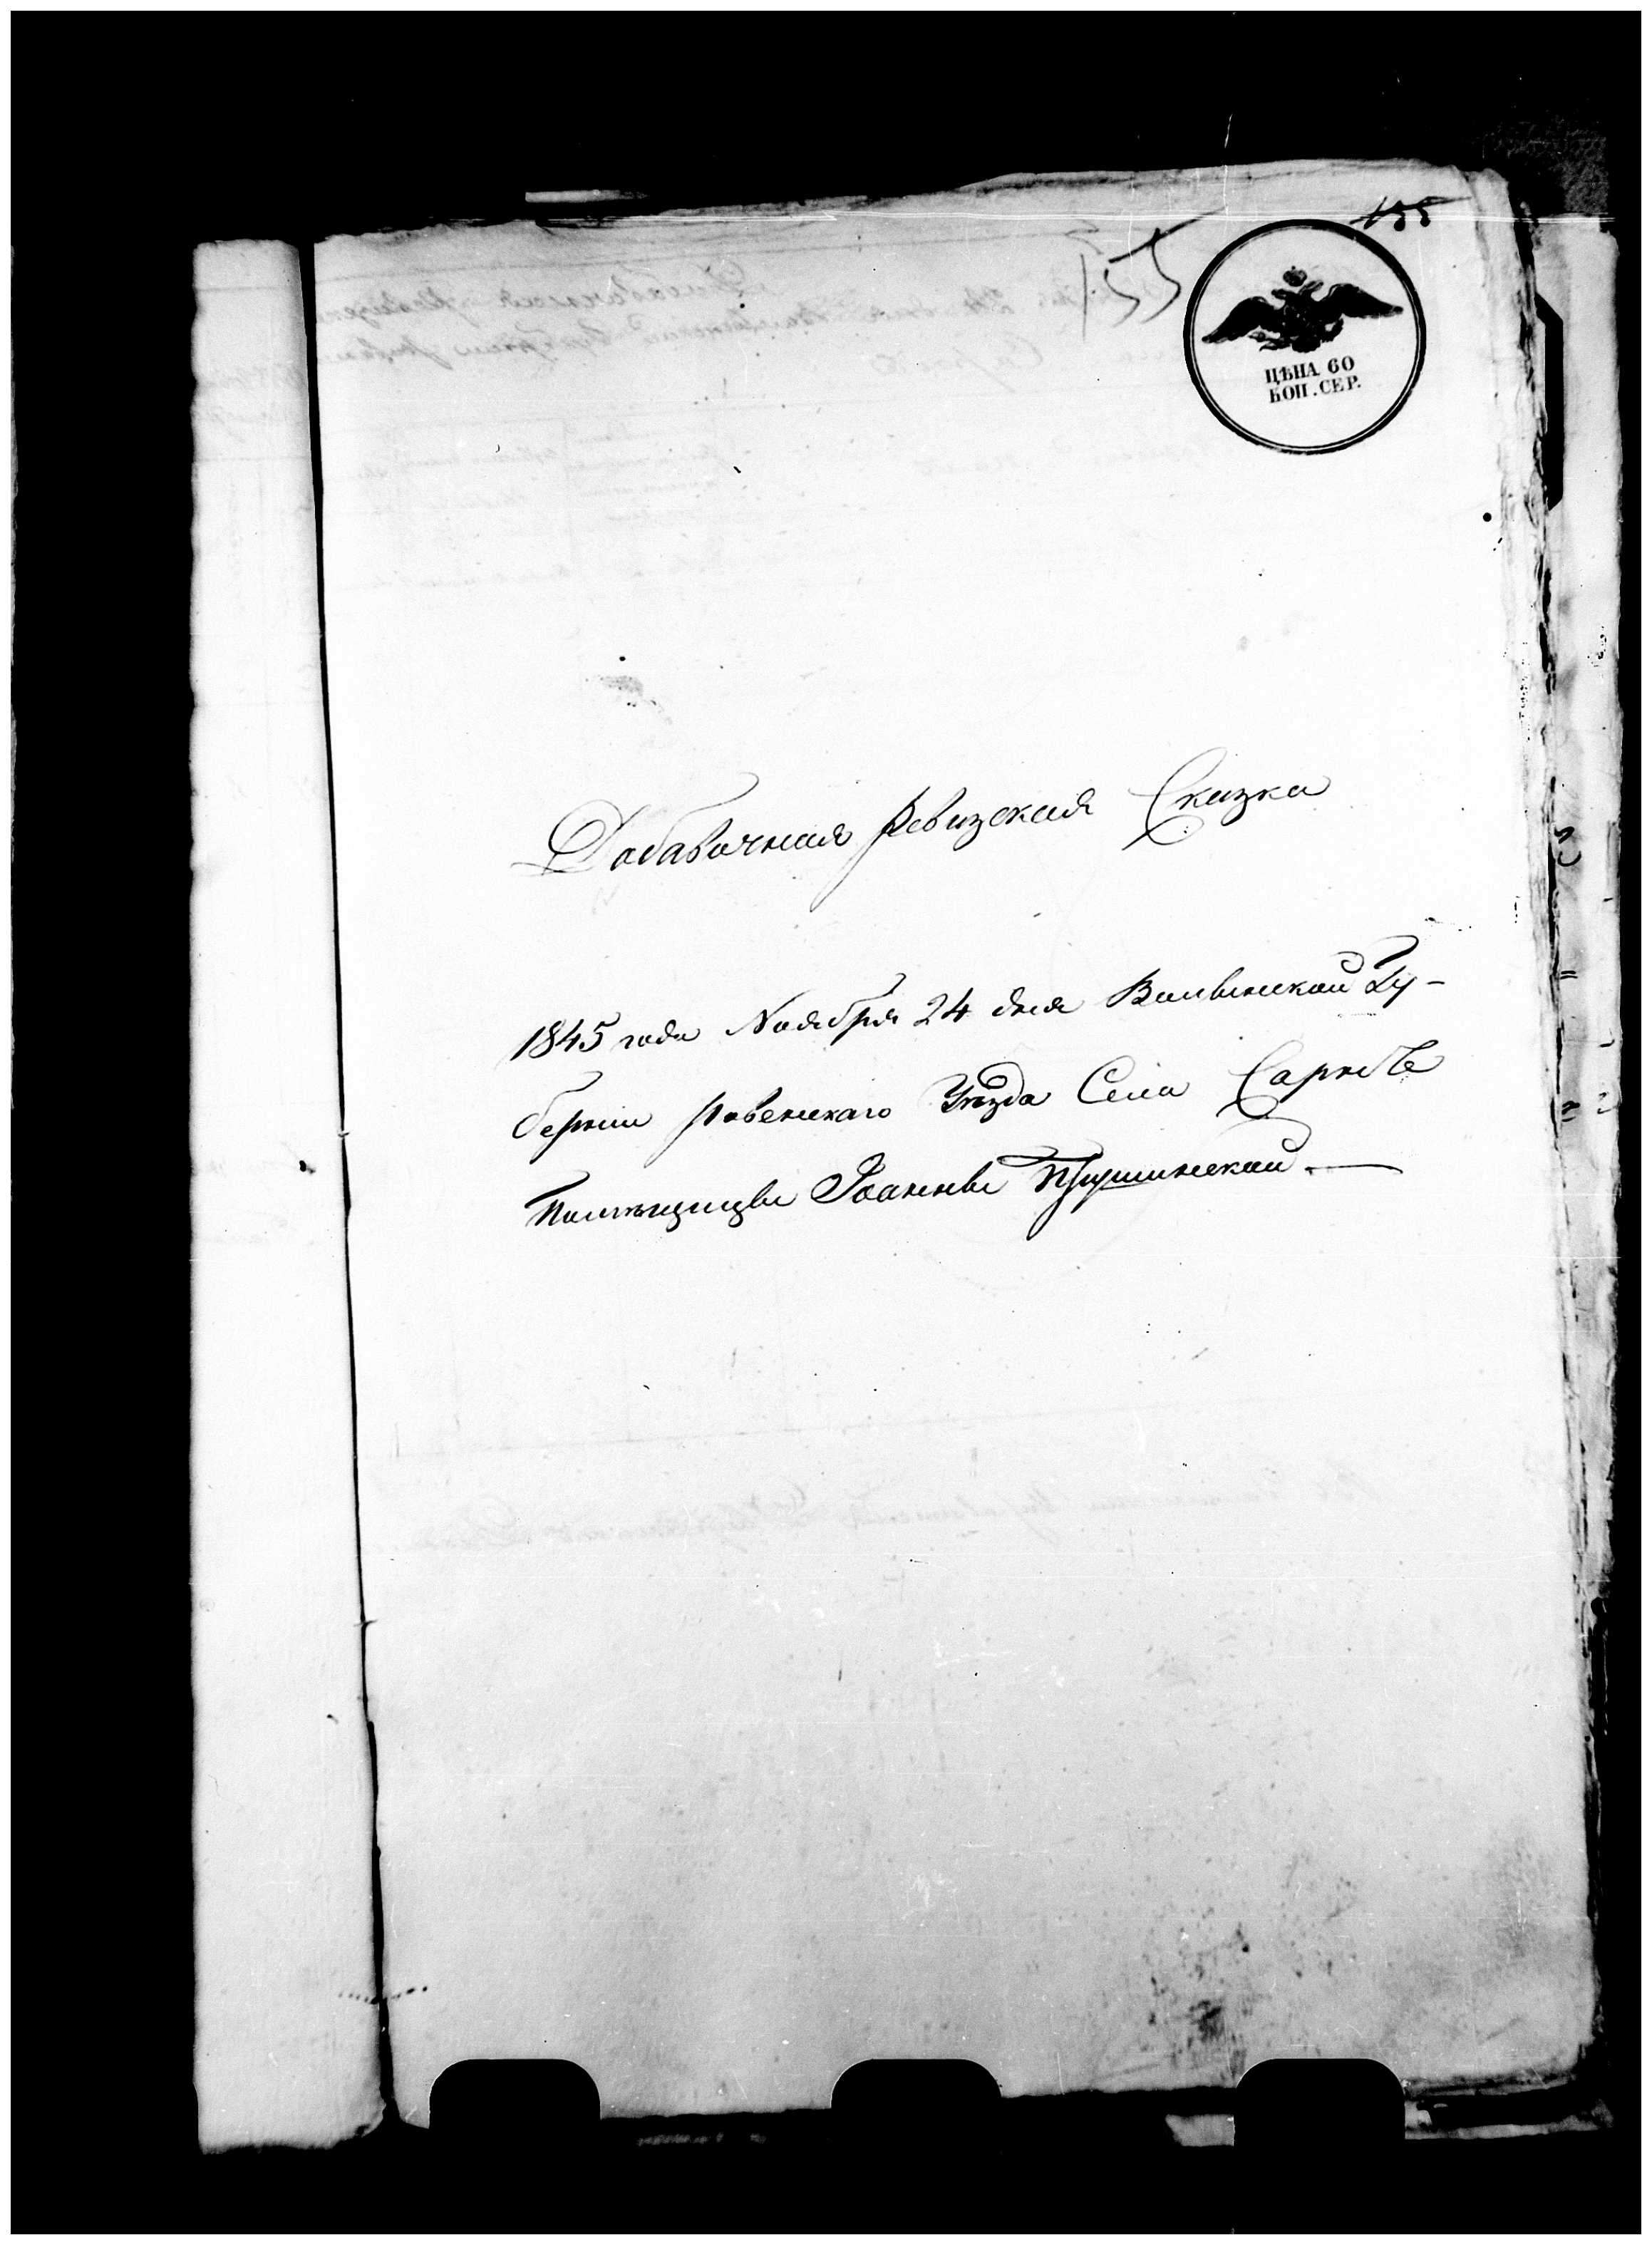 155
155
ЦѢНА 60
КОП. СЕР.
Добавочная Ревизская Сказка
1845 года Ноября 24 дня Волынской Гу-
берніи Ровенскаго Уѣзда Села Сарнъ
Помѣщицы Іоанны Прушинской. —